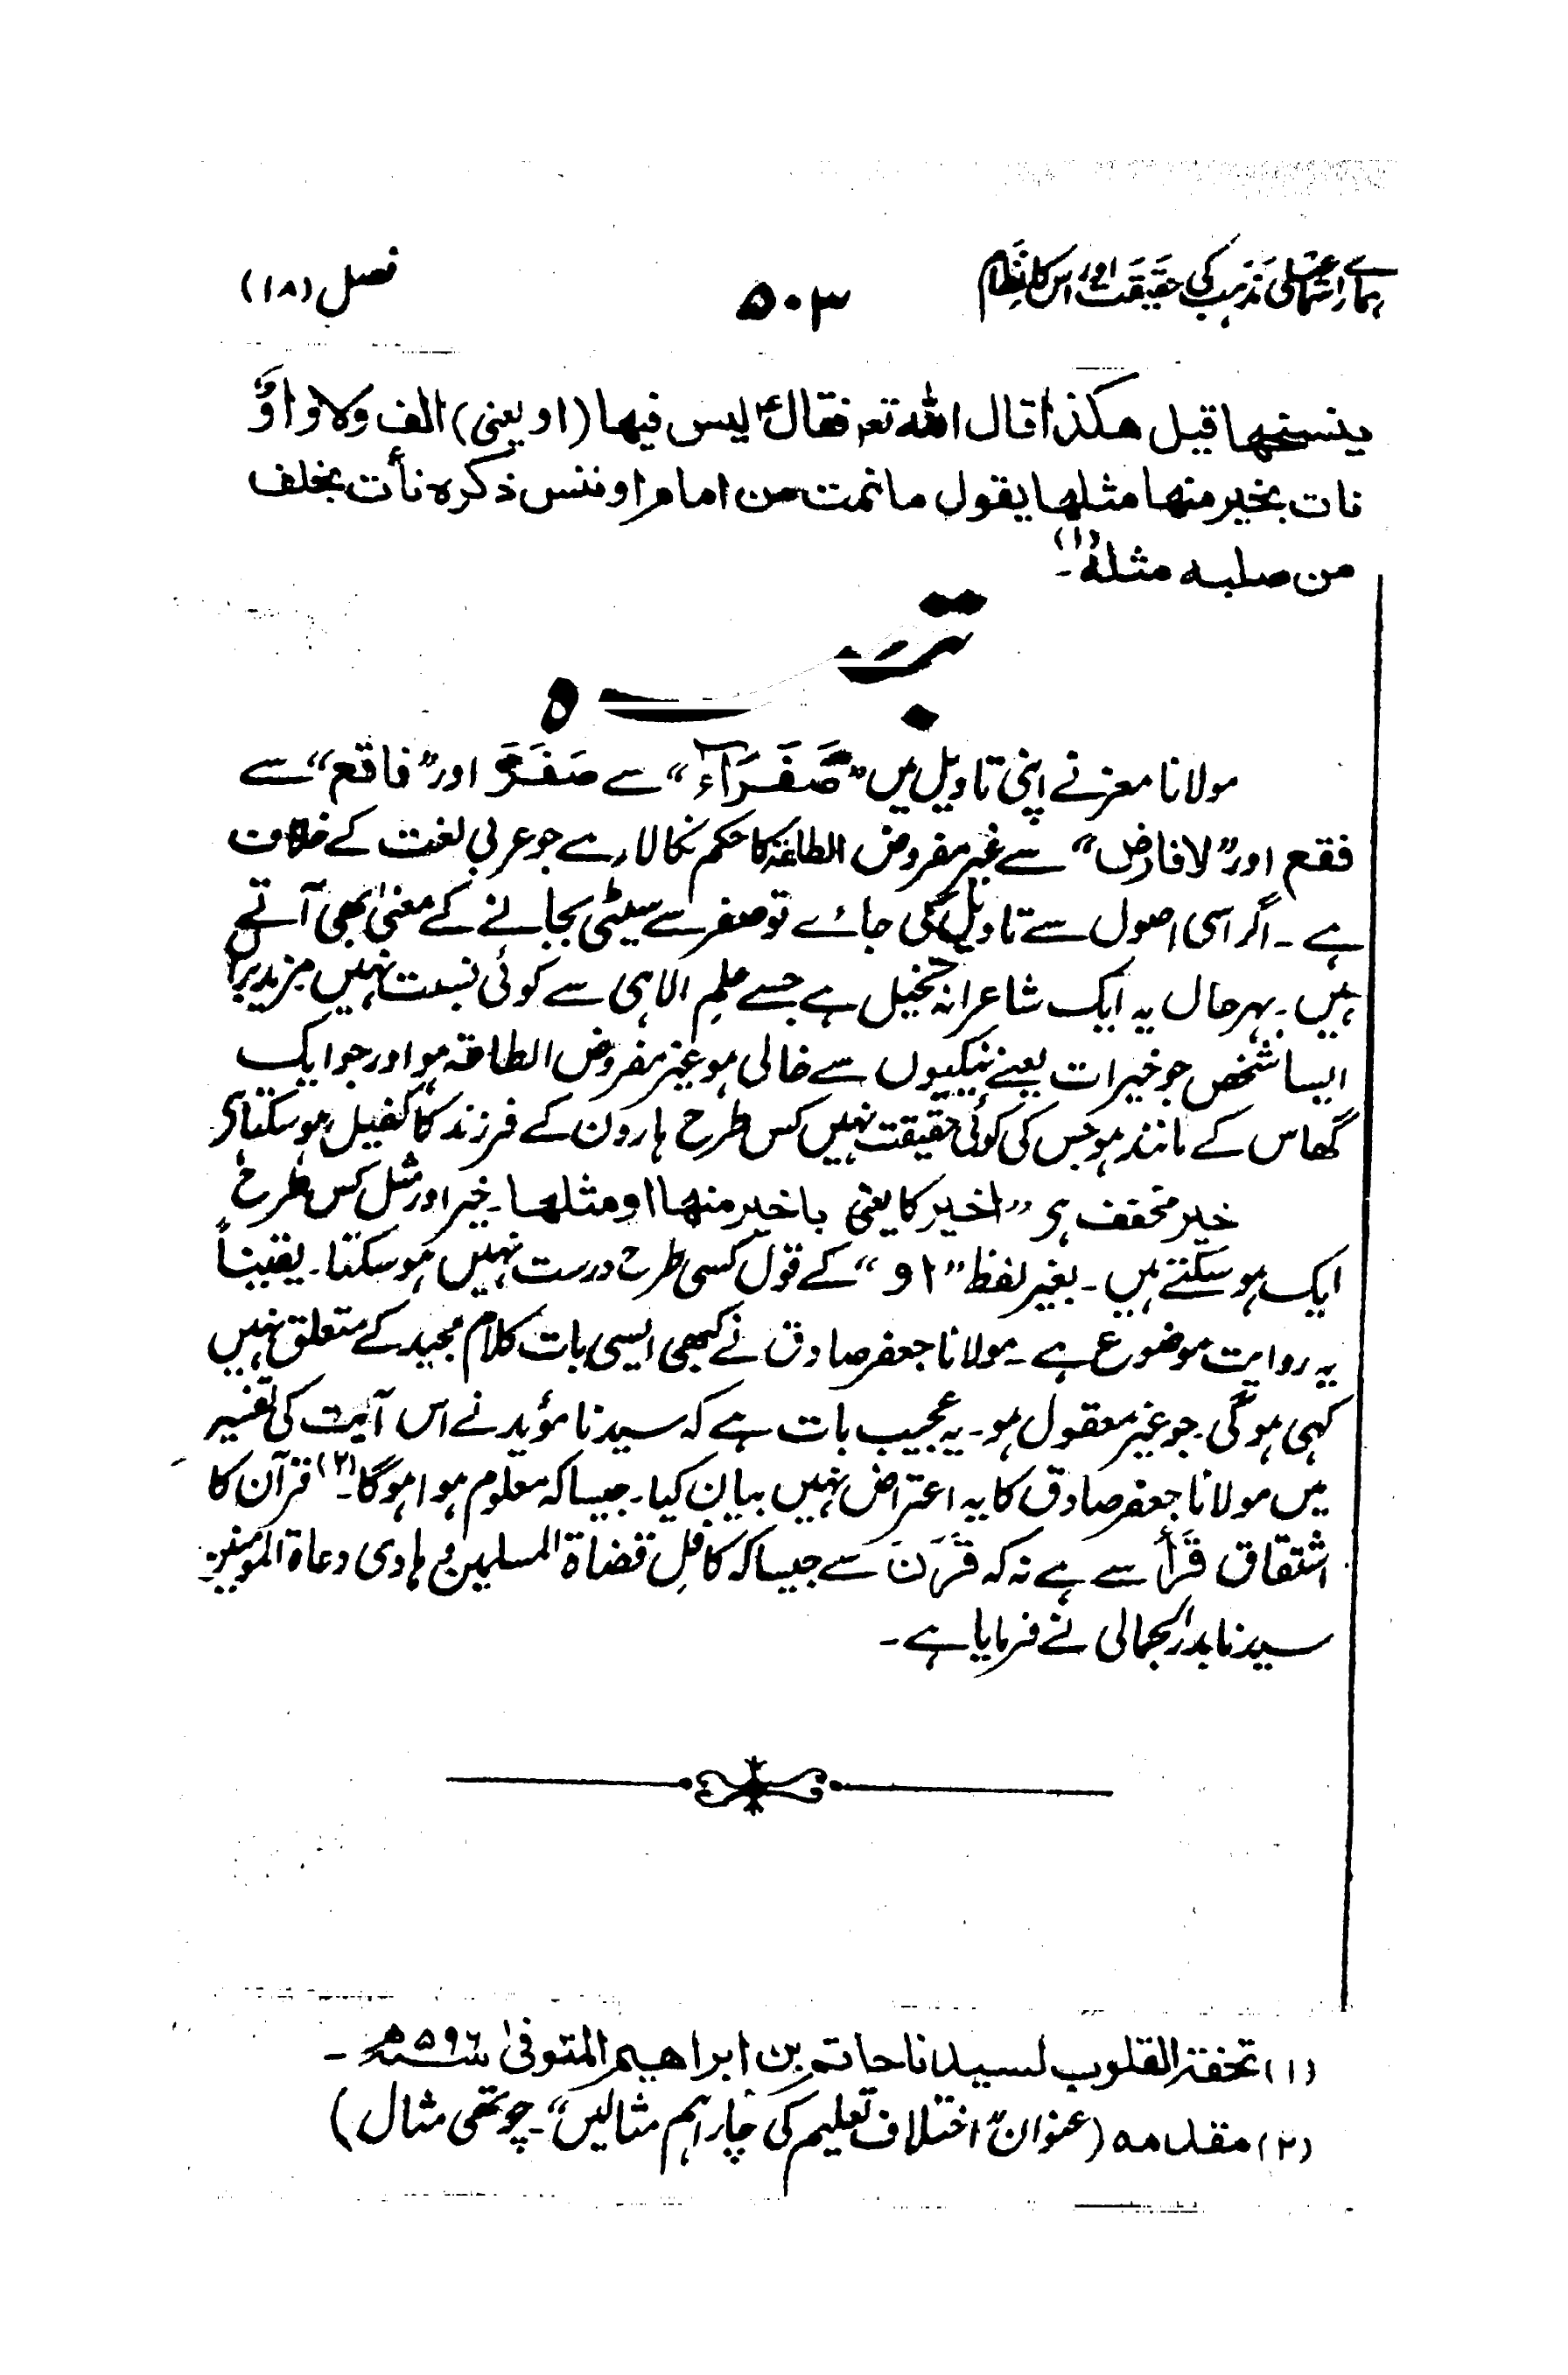 ہمارے اسماعیلی مذہب کی حقیقت اور اس کا نظام
۵۰۳
فصل (۱۸)
ینسخها قیل هكذا قال الله تعـ فقال ؑ لیس فیها (او یعنی) الف ولا واوٌ
نات بخیر منها مثلها یقول ما نمت من امام او ننس ذكره نأت بخلف
من صلبه مثلهٗ (۱)۔
تبصرہ
مولانا معز نے اپنی تاویل میں ”صَفَرَآءُ“ سے صَفَرَ اور ”فاقع“ سے
فقع اور ”لا فارض“ سے غیر مفروض الطاعۃ کا حکم نکالا ہے جو عربی لغت کے خلاف
ہے۔ اگر اسی اصول سے تاویل کی جائے تو صفر سے سیٹی بجانے کے معنیٰ بھی آتے
ہیں۔ بہرحال یہ ایک شاعرانہ تخیل ہے جسے علمِ الاہی سے کوئی نسبت نہیں مزید براں
ایسا شخص جو خیرات یعنے نیکیوں سے خالی ہو غیر مفروض الطاقہ ہو اور جو ایک
گھاس کے مانند ہو جس کی کوئی حقیقت نہیں کس طرح ہارون کے فرزند کا کفیل ہو سکتا ہی
خیر مخفف ہی ”اخیر کا یعنی باخیر منها او مثلها۔ خیر اور مثل کس طرح
ایک ہو سکتے ہیں۔ بغیر لفظ ”او“ کے قول کسی طرح درست نہیں ہو سکتا۔ یقیناً
یہ روایت موضوع ہے۔ مولانا جعفر صادق نے کبھی ایسی بات کلام مجید کے متعلق نہیں
کہی ہوگی جو غیر معقول ہو۔ یہ عجیب بات ہے کہ سیدنا مؤید نے اس آیت کی تفسیر
میں مولانا جعفر صادق کا یہ اعتراض نہیں بیان کیا۔ جیسا کہ معلوم ہوا ہوگا۔(۲) قرآن کا
اشتقاق قَرَأَ سے ہے نہ کہ قَرَنَ سے جیسا کہ کافلِ قضاۃ المسلمین و ہادی دعاۃ المؤمنین
سیدنا بدر الجمالی نے فرمایا ہے۔
(۱) تحفۃ القلوب لسیدنا حاتم بن ابراهیم المتوفیٰ سنہ ۵۹۶ھ۔
(۲) مقدمه (عنوان ”اختلاف تعلیم کی چار اہم مثالیں“۔ چوتھی مثال)